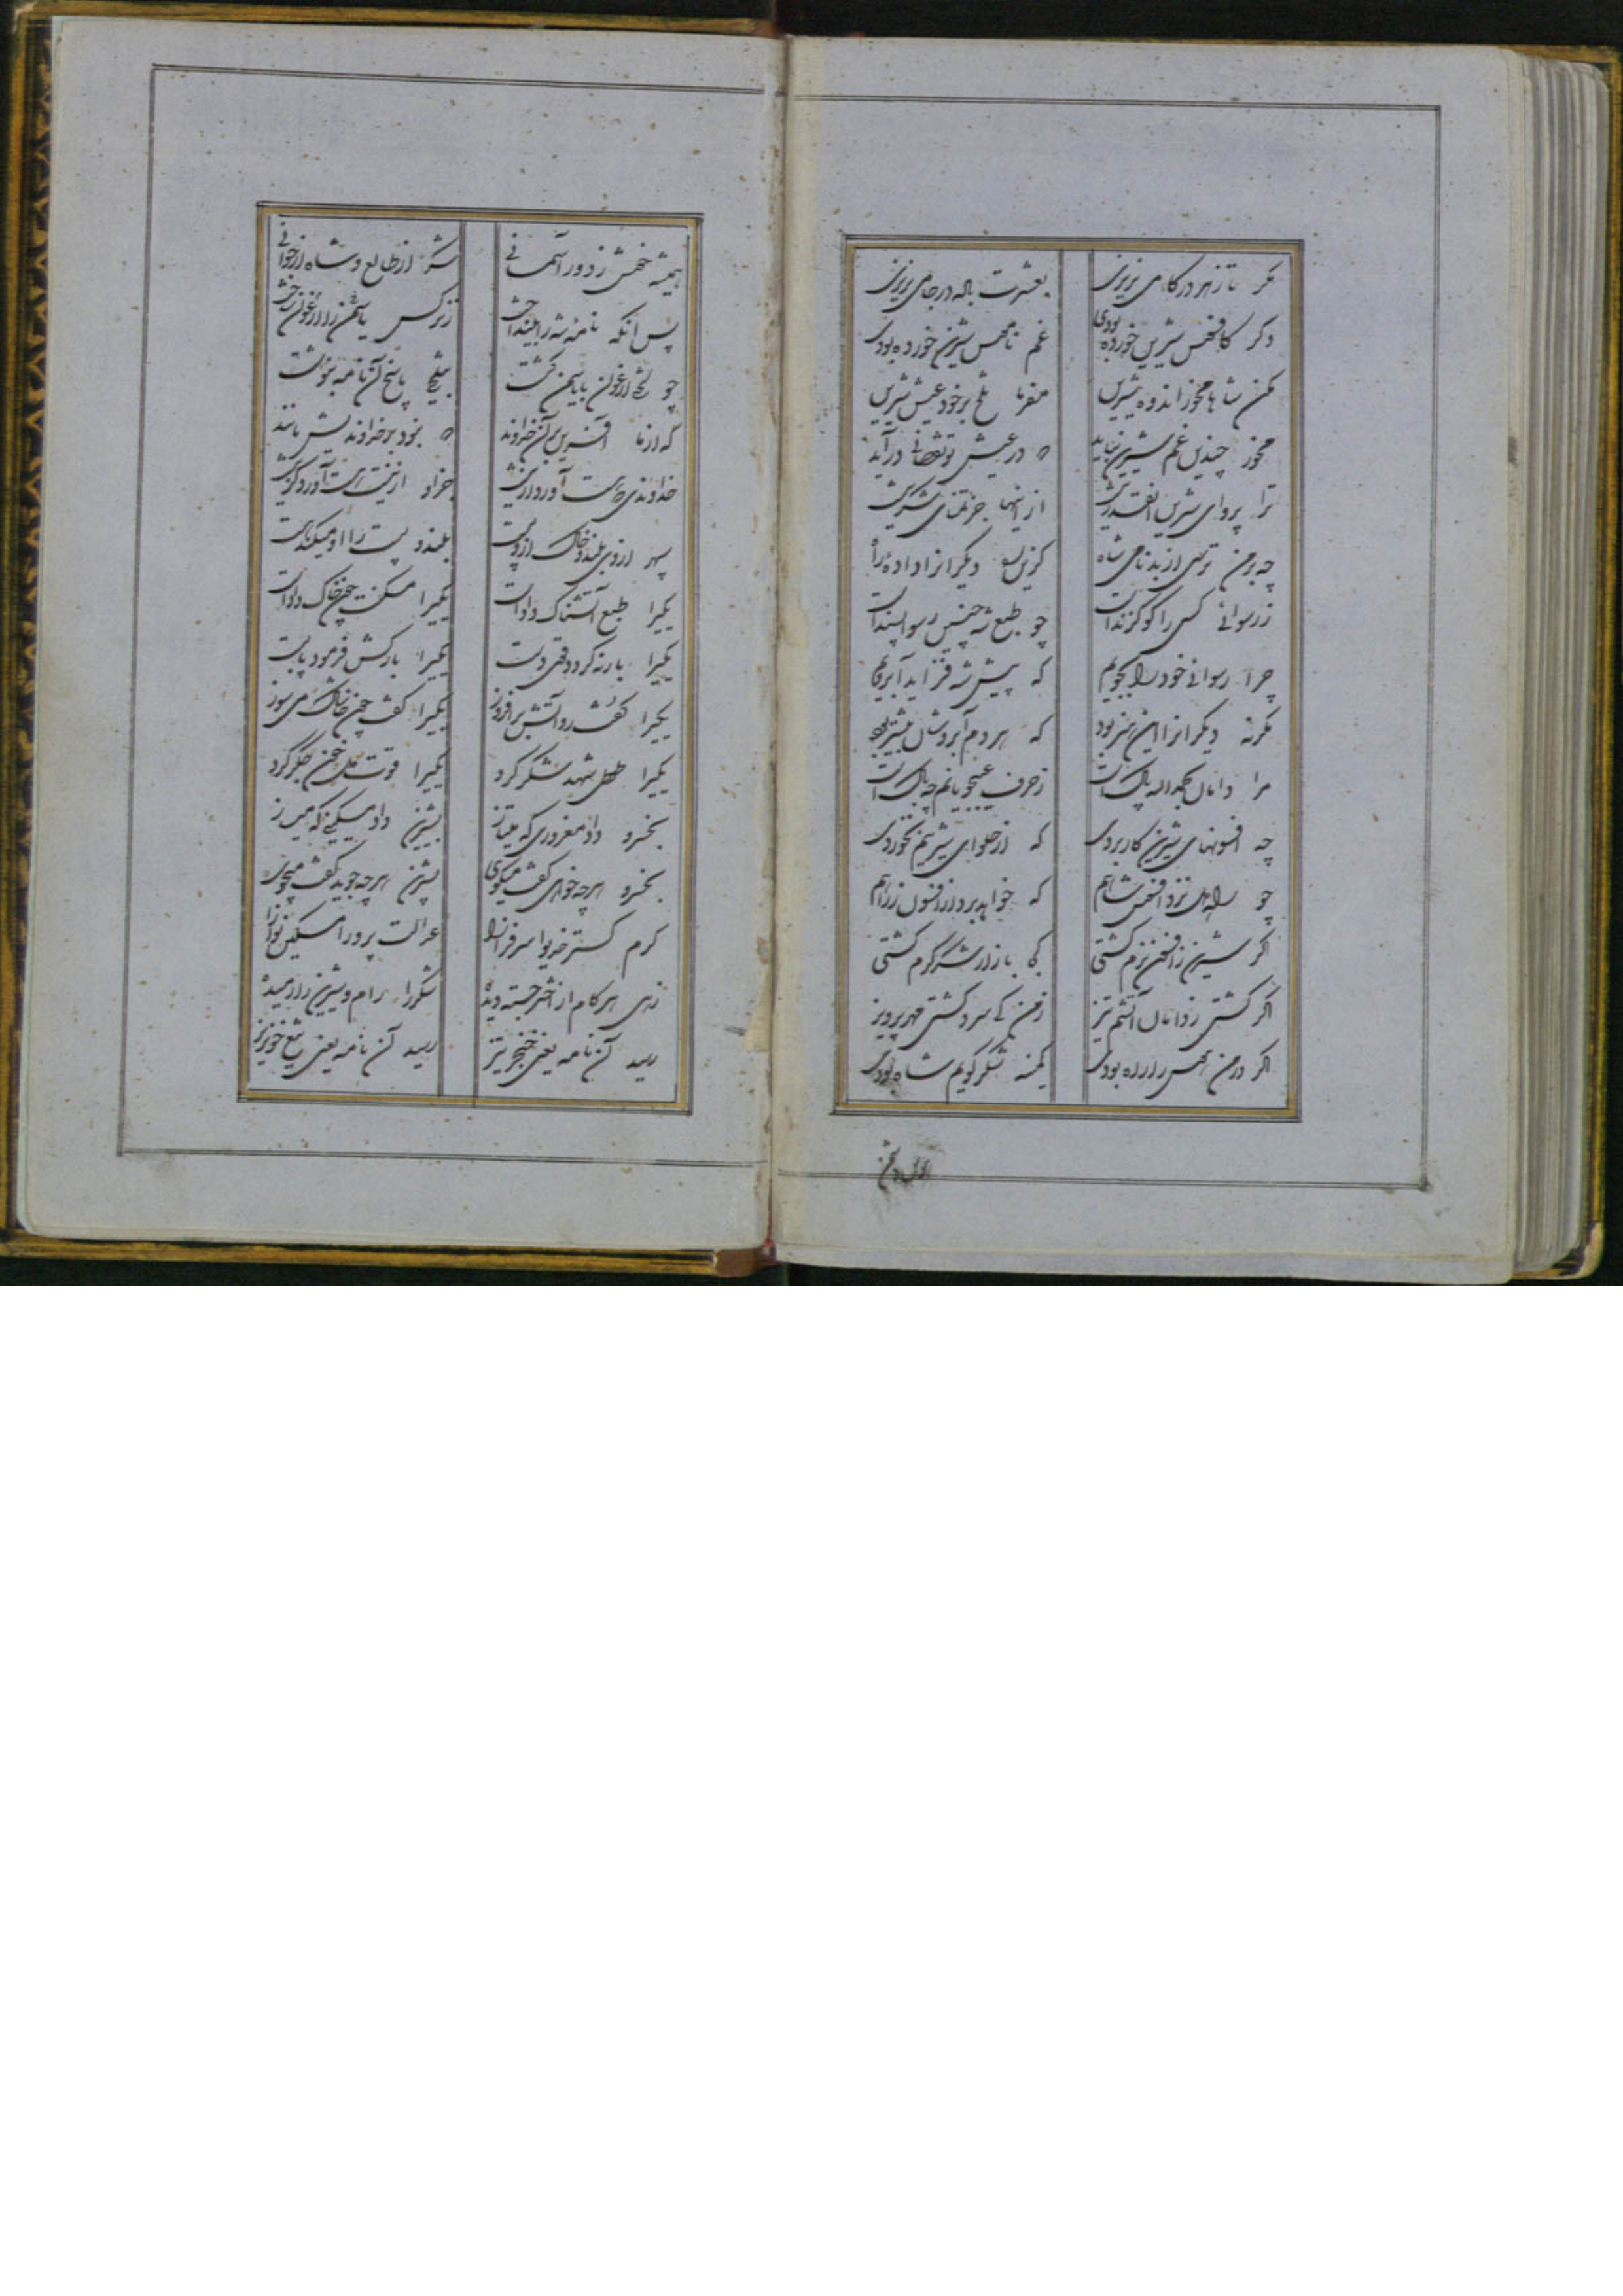 مکر تا زهر در کامی نریزی بعشرت باده در جامی نریزی
دکر کافسوس شیرین خورده بودی غم ناموس شیرین خورده بودی
مکن شاها مخور اندوه شیرین مفرما تلخ بر خود عیش شیرین
مخور چندین غم شیرین نباید که در عیش تو نقصانی درآید
ترا پروای شیرین اینقدر نیست از اینها جز تمنای شکر نیست
چه بر من ترسی از بدنامی شاه کزین ره دیکران را داده راه
ز رسوائی کسی را کو کزند است چو طبع شه چنین رسوا پسند است
چرا رسوائی خود را نجویم که پیش شه فزاید آبرویم
مکر نه دیکران را این هنر بود که هر دم آبروشان بیشتر بود
مرا دامان بحمدالله پاک است ز حرف عیبجویانم چه باک است
چه افسونهای شیرین کار بردی که از حلوای شیرینم نخوردی
چو راه نزد افسون شاهم که خواهد برد از افسون ز راهم
اکر شیرین ز افسون نرم کشتی کجا بازار شکر کرم کشتی
اکر کشتی ز دامان آتشم تیز ز من کی سرد کشتی مهر پرویز
اکر در من هوس را راه بودی کمینه شکر کویم شاه بودی
همیشه خوش ز دور آسمانی شکر از طالع و شاه از جوانی
پس آنکه نامهٔ شه را بینداخت ز نرکس یاسمن را ارغوان ساخت
چو لختی ارغوان با یاسمن کشت بتلخی پاسخ آن نامه بنوشت
که از ما آفرین بر آن خداوند که نبود بر خداوندیش مانند
خداوندی آورد و زینش خرد از نیستی هست آورد کزینش
سپهر از وی بلند و خاک ازو پست بلند و پست را او میکند هست
یکیرا طبع آتشناک داد است یکیرا مسکنت چون خاک داد است
یکیرا بار نه کرد و قوی دست یکیرا بارکش فرمود پابست
یکیرا کفت رو آتش برافروز یکیرا کفت چون خاشاک می سوز
یکیرا طعمه شهد و شکر کرد یکیرا قوت دل خون جکر کرد
بخسرو داد مغروری که میتاز بشیرین داد مسکینی که میساز
بخسرو هرچه خواهی کفت میکوی بشیرین هرچه جوید کفت میجوی
کرم کستر خدیوا سرفرازا عدالت پرورا مسکین نوازا
زهی هر کام از اختر جسته دیده شکر را رام و شیرین را رمیده
رسید آن نامه یعنی خنجر تیز رسید آن نامه یعنی تیغ خونریز